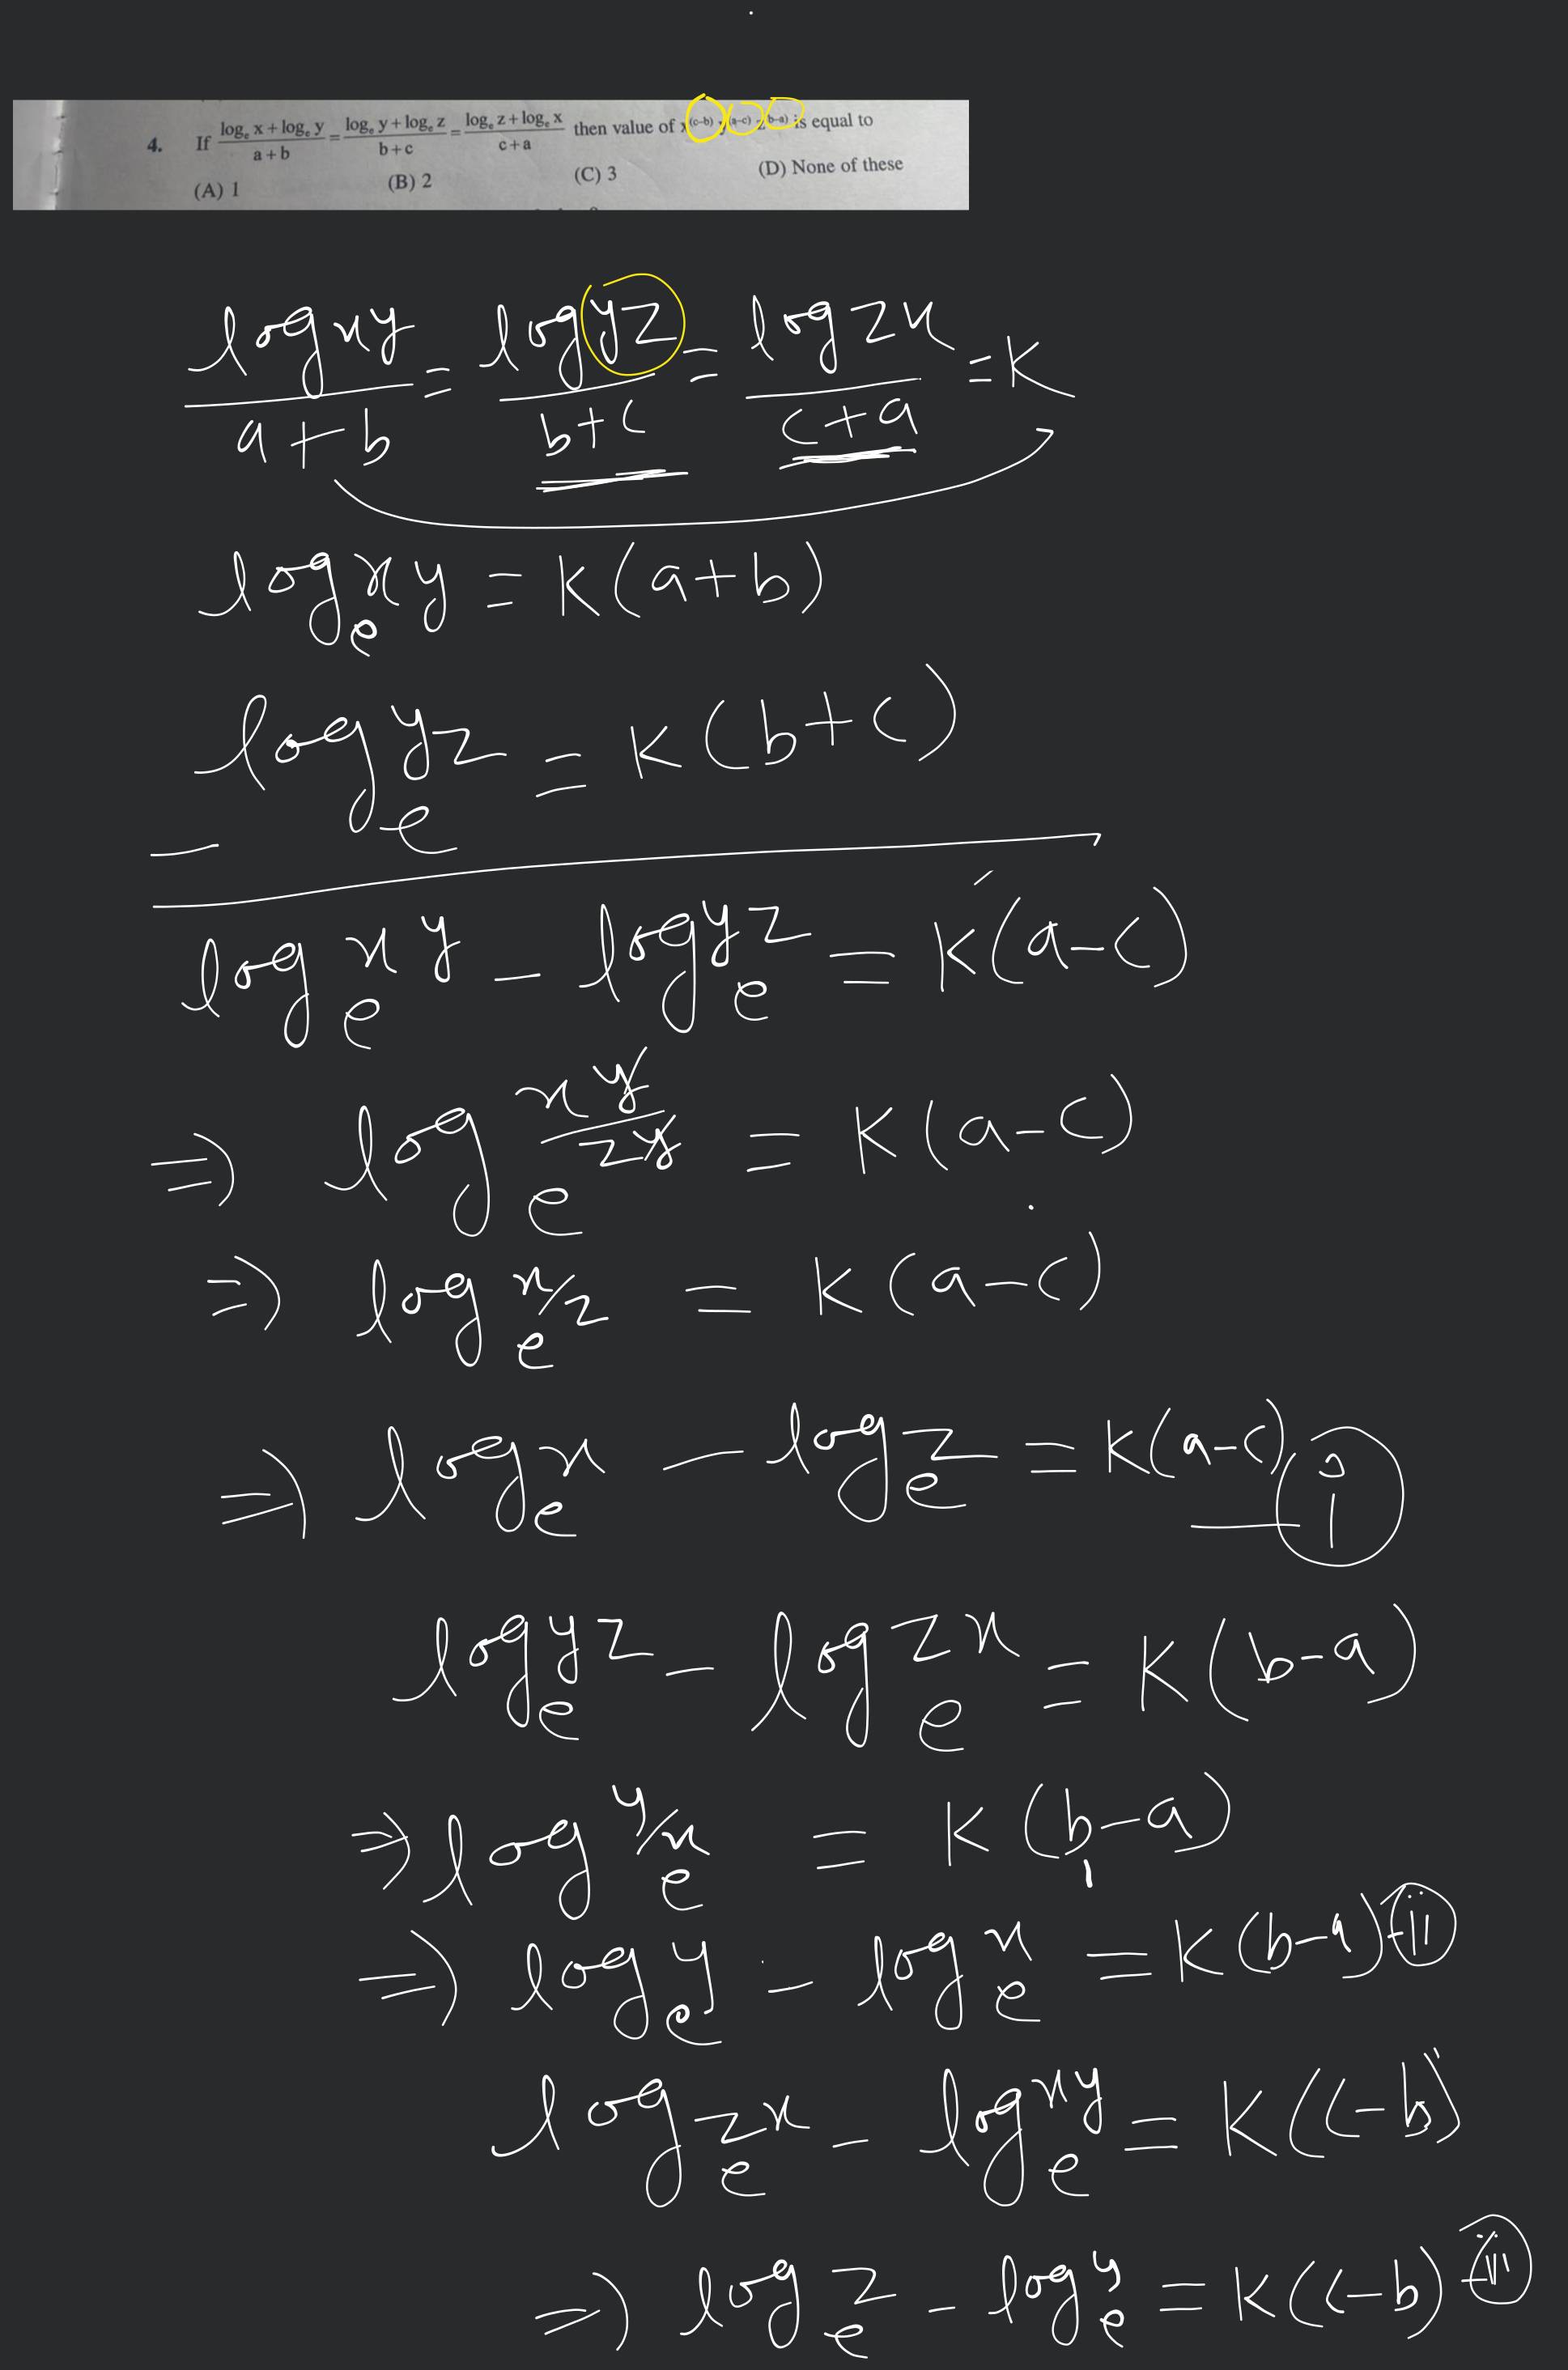 4. If (logₑ x + logₑ y)/(a+b) = (logₑ y + logₑ z)/(b+c) = (logₑ z + logₑ x)/(c+a) then value of x^(c–b) y^(a–c) z^(b–a) is equal to
(A) 1 (B) 2 (C) 3 (D) None of these
log xy/(a+b) = log yz/(b+c) = log zx/(c+a) = K
logₑ xy = K(a+b)
logₑ yz = K(b+c)
logₑ xy – logₑ yz = K(a–c)
⇒ logₑ xy/zy = K(a–c)
⇒ logₑ x/z = K(a–c)
⇒ logₑ x – logₑ z = K(a–c) – i
logₑ yz – logₑ zx = K(b–a)
⇒ logₑ y/x = K(b–a)
⇒ logₑ y – logₑ x = K(b–a) – ii
logₑ zx – logₑ xy = K(c–b)
⇒ logₑ z – logₑ y = K(c–b) – iii